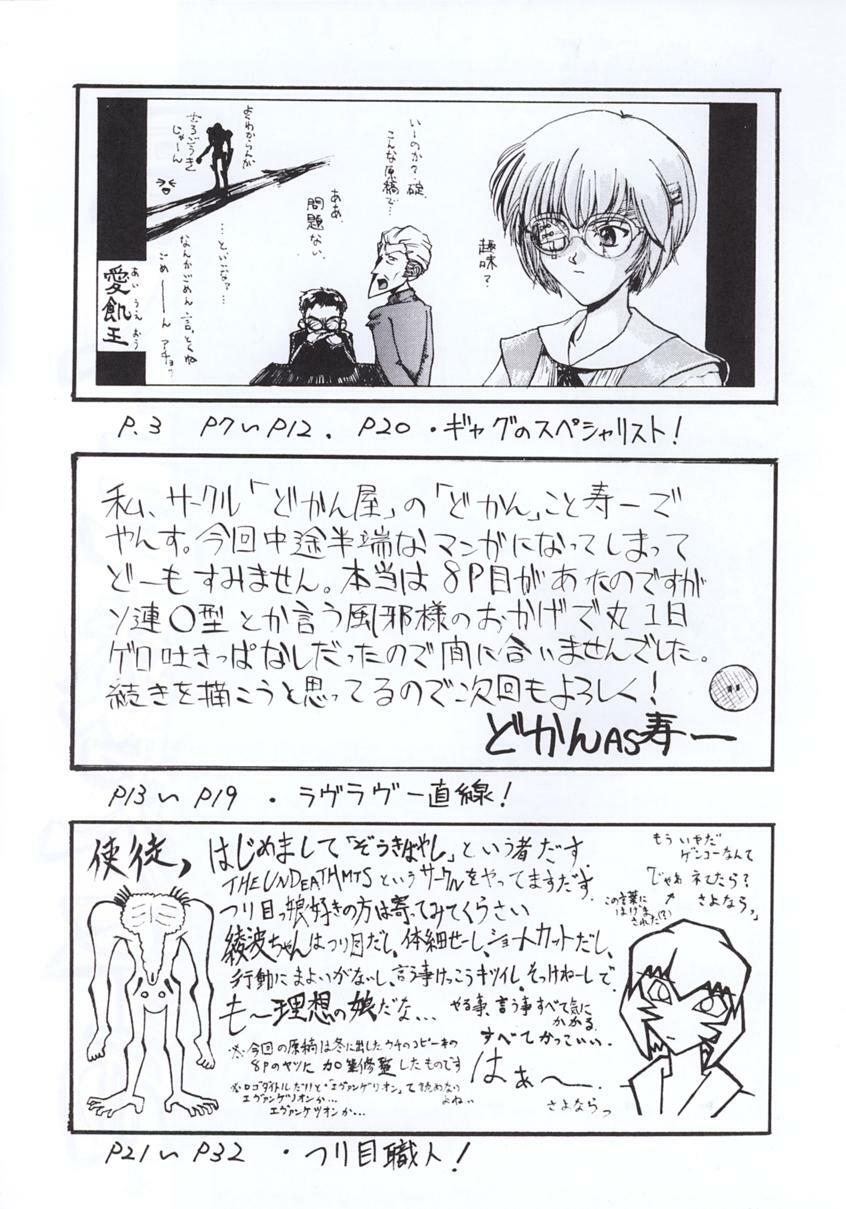 いーのか？碇、
こんな原稿で…
ああ、
問題ない。
趣味？
…といーな？…
なんかごめん
ごめーーん
よくわからんが
じゃーん
愛飢王
あいうえおう
P.3 P7〜P12. P20・ギャグのスペシャリスト！
私、サークル「どかん屋」の「どかん」こと寿一で
やんす。今回中途半端なマンガになってしまって
どーもすみません。本当は8P目があったのですが
ソ連〇型とか言う風邪様のおかげで丸1日
ゲロ吐きっぱなしだったので間に合いませんでした。
続きを描こうと思ってるので次回もよろしく！
どかんAS寿一
P13〜P19 ・ラヴラヴ一直線！
使徒、
はじめまして「ぞうきばやし」という者だす。
THE UNDEATHMTSというサークルをやってますだす。
つり目っ娘好きの方は寄ってみてくらさい
綾波ちゃんはつり目だし、体細せーし、ショートカットだし、
行動にまよいがないし、言う事けっこうキツイし、そっけねーしで、
も〜理想の娘だな…
やる事、言う事すべて気に
かかる
すべてかっこいい.
はぁ〜
さよならっ
※今回の原稿は冬に出したウチのコピー本の
8Pのヤツに加筆修整したものです
※ロゴタイトルだけど・「エヴァンゲリオン」て読めない
よね…
エヴァンゲリオンか…
エヴァンケツオンか…
もういやだ
ゲンコーなんて
じゃあネてたら？
さよならっ
この言葉に
はげま
された(?)
P21〜P32 ・つり目職人！